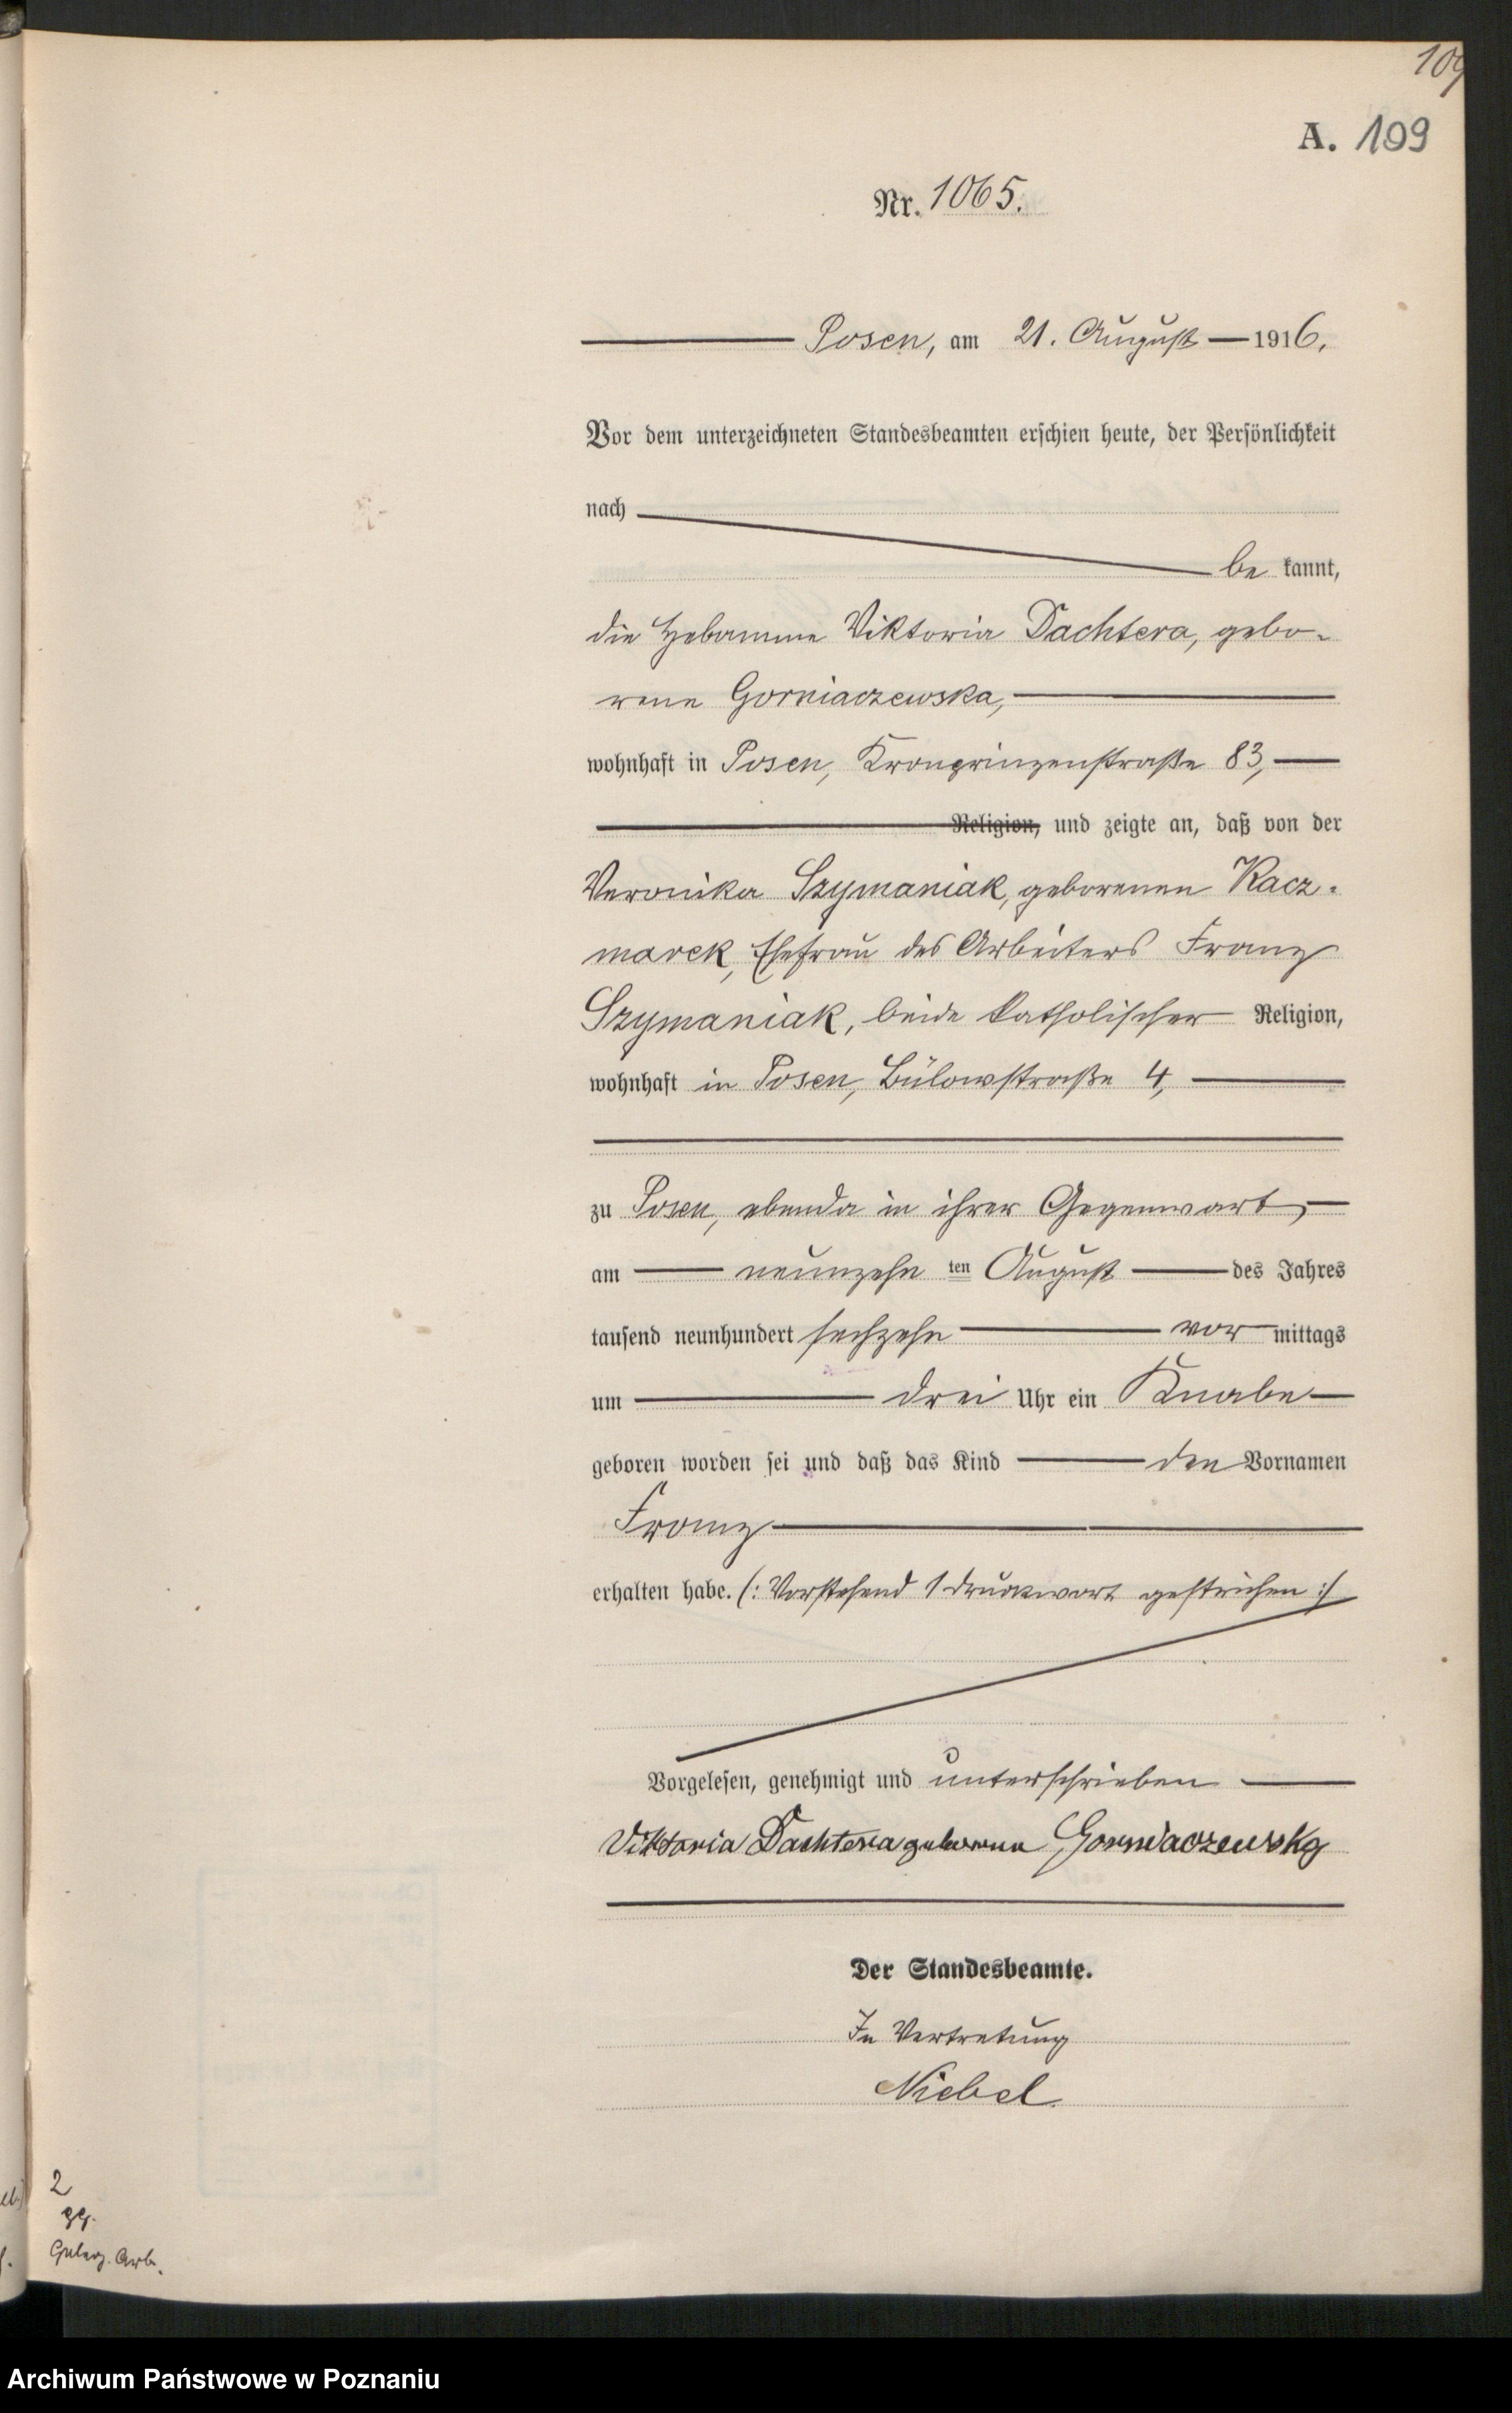 109
A. 109
Nr. 1065.
Posen, am 21. August 1916.
Vor dem unterzeichneten Standesbeamten erschien heute, der Persönlichkeit
nach
be kannt,
die Hebamme Viktoria Dachtera, gebo-
rene Gorniaczewska,
wohnhaft in Posen, Kronprinzenstraße 83,
Religion, und zeigte an, daß von der
Veronika Szymaniak, geborenen Kacz-
marek, Ehefrau des Arbeiters Franz
Szymaniak, beide katholischer Religion,
wohnhaft in Posen, Bülowstraße 4,
zu Posen, ebenda in ihrer Gegenwart,
am neunzehn ten August des Jahres
tausend neunhundert sechzehn vor mittags
um drei Uhr ein Knabe
geboren worden sei und daß das Kind den Vornamen
Franz
erhalten habe. (: Vorstehend 1 Druckwort gestrichen :)
Vorgelesen, genehmigt und unterschrieben
Viktoria Dachtera geborene Gorniaczewska
Der Standesbeamte.
In Vertretung
Niebel
2
Arb.
Archiwum Państwowe w Poznaniu